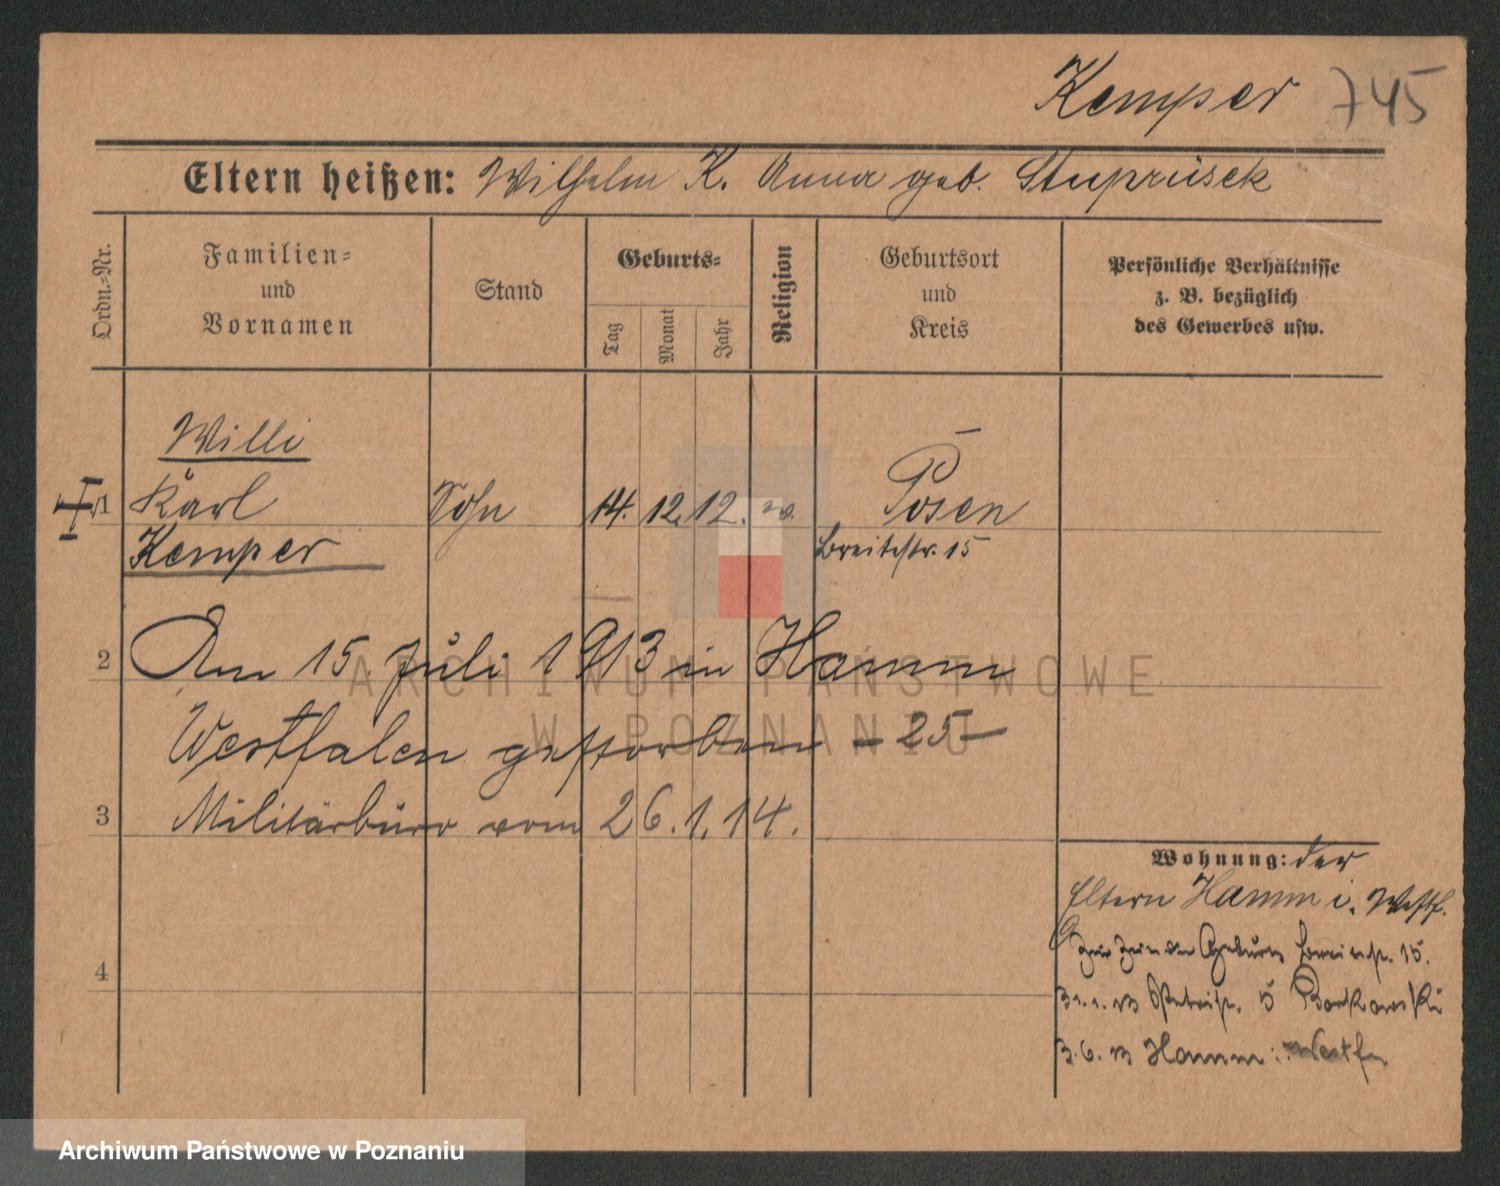 Kemper 745
Eltern heißen: Wilhelm K. Anna geb. Stuprüsek
Ordn.=Nr.
Familien=
und
Vornamen
Stand
Geburts=
Tag
Monat
Jahr
Religion
Geburtsort
und
Kreis
Persönliche Verhältnisse
z. B. bezüglich
des Gewerbes usw.
Willi
1 Karl Sohn 14. 12. 12. ev. Posen
Kemper Breitestr. 15
2 Am 15 Juli 1913 in Hamm
Westfalen gestorben - 25 -
3 Militärbüro vom 26. 1. 14.
4
Wohnung: der
Eltern Hamm i. Westf.
Zur Zeit der Geburt Breitestr. 15.
31.1.13 5 Borkowski
3.6.13 Hamm: Westf
ARCHIWUM PAŃSTWOWE
W POZNANIU
Archiwum Państwowe w Poznaniu